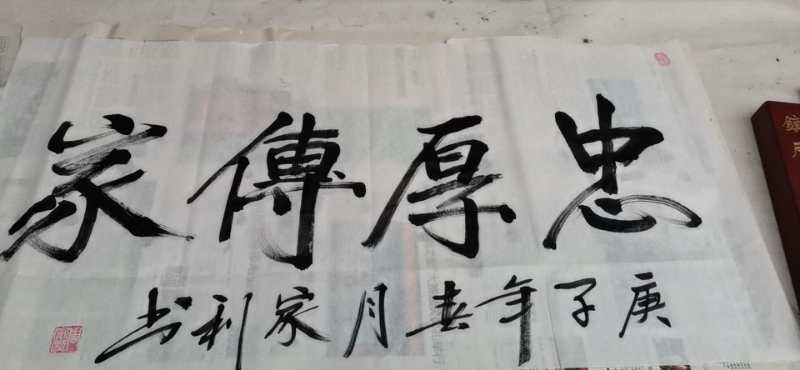 忠厚傳家
庚子年春月家利书